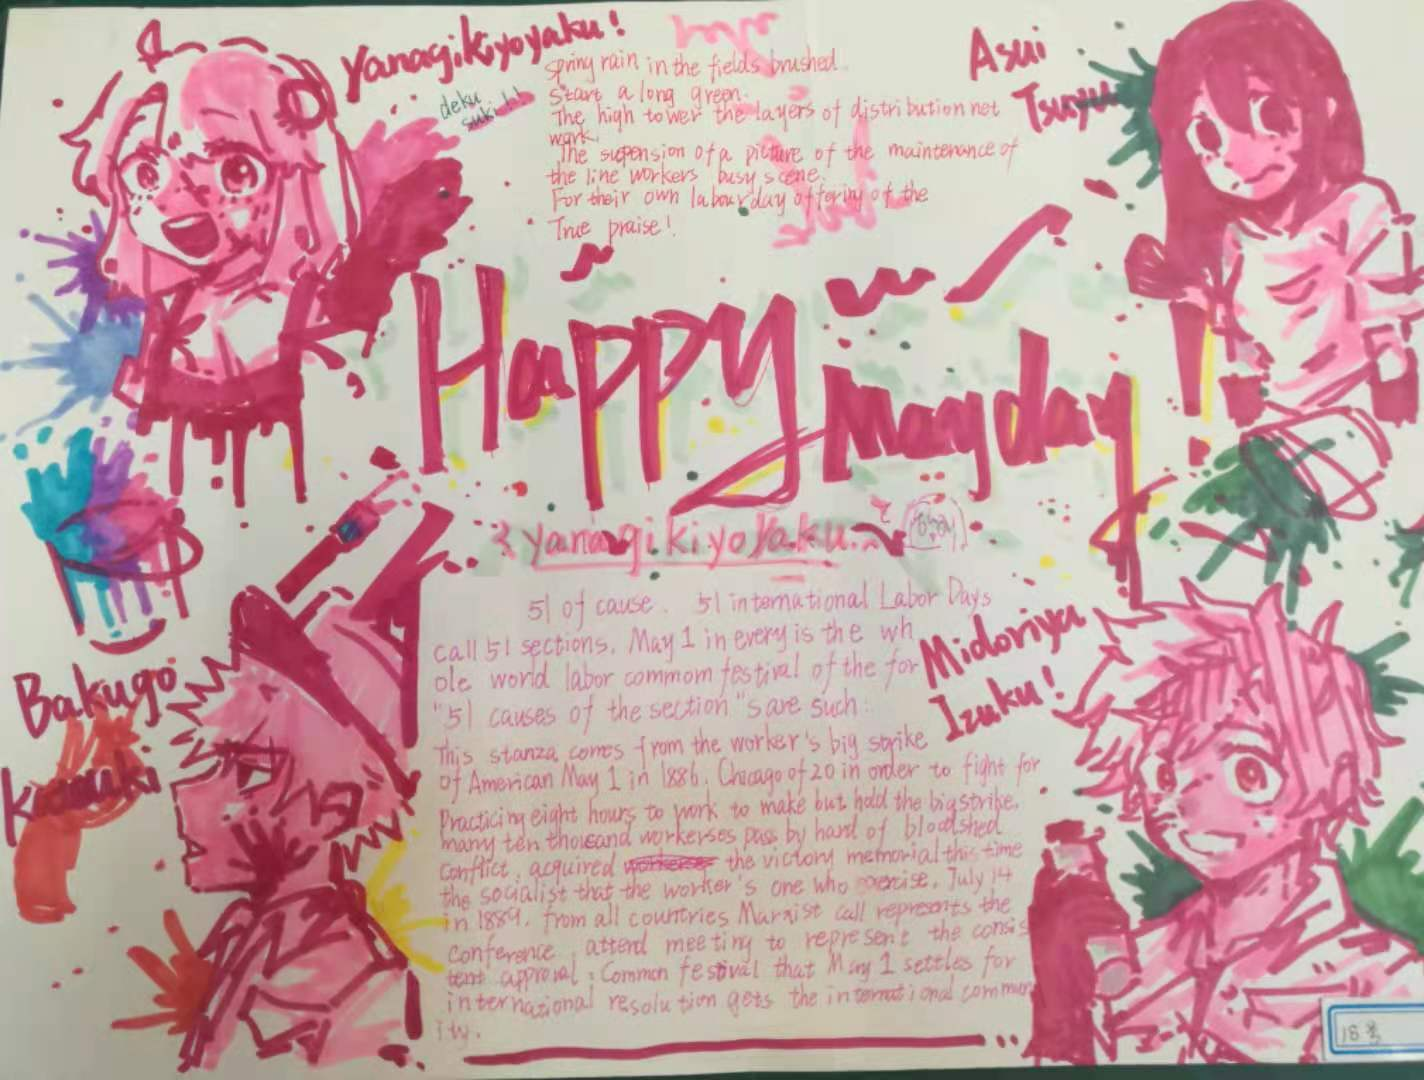 Yanagikiyoyaku!
deku
suki!!!
Spring rain in the fields brushed.
Start a long green.
The high tower the layers of distribution net
work.
The supension of a picture of the maintenance of
the line workers' busy scene.
For their own labourday offoring of the
True praise!
Asui
Tsuyu
Happy
May day!
yanagikiyoyaku
51 of cause. 51 international Labor Days
call 51 sections. May 1 in every is the wh
ole world labor commom festival of the for
"51 causes of the section "s are such:
This stanza comes from the worker's big strike
of American May 1 in 1886. Chicago of 20 in order to fight for
Practicing eight hours to work to make but hold the big strike.
many ten thousand workerses pass by hard of bloodshed
conflict, acquired the victory memorial this time
the socialist that the worker's one who exercise. July 14
in 1889. from all countries Marxist call represents the
conference, attend meeting to represent the consis
tent approval. Common festival that May 1 settles for
international resolution gets the international commun
ity.
Bakugo
Katsuki
Midoriya
Izuku!
18号